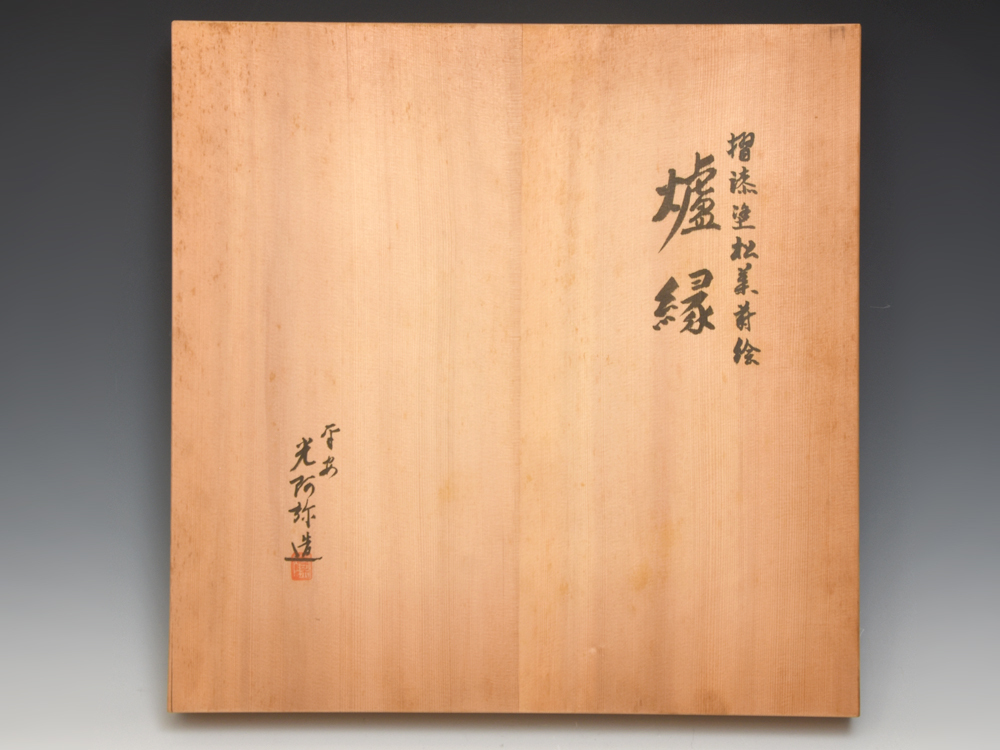 摺漆塗松葉蒔絵
爐縁
平安
光阿弥造